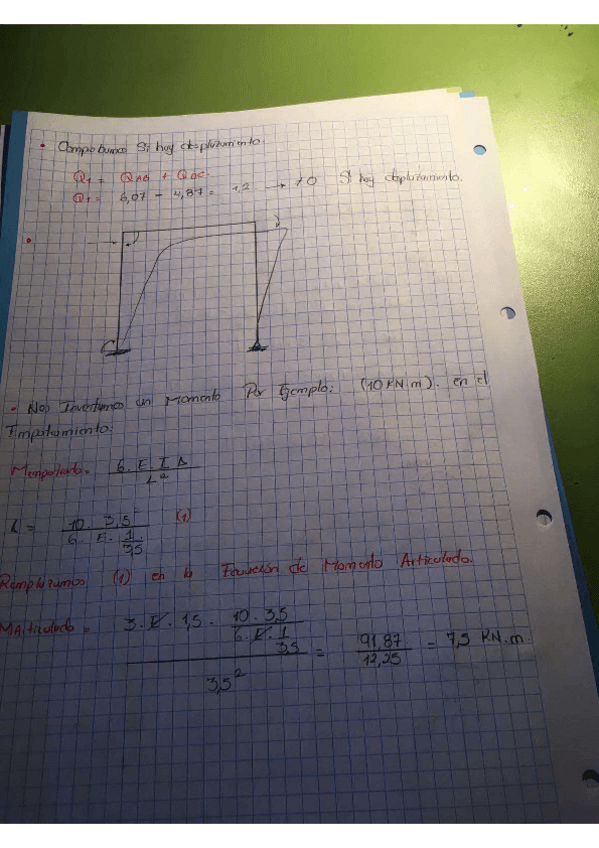 • Comprobamos Si hay desplazamiento.
Q1 = QAB + QDC.
Q1 = 6,07 - 4,87 = 1,2 → ≠ 0 Si hay desplazamiento.
• Nos Inventamos un Momento Por Ejemplo: (10 KN.m). en el
Empotramiento:
Mempotrado = 6. E. I Δ / L²
Δ = 10. 3,5² / 6. E. 1/3,5 (1)
Remplazamos (1) en la Ecuación de Momento Articulado.
MArticulado = 3. E. 1,5. (10. 3,5 / 6. E. 1/3,5) / 3,5² = 91,87 / 12,25 = 7,5 KN.m